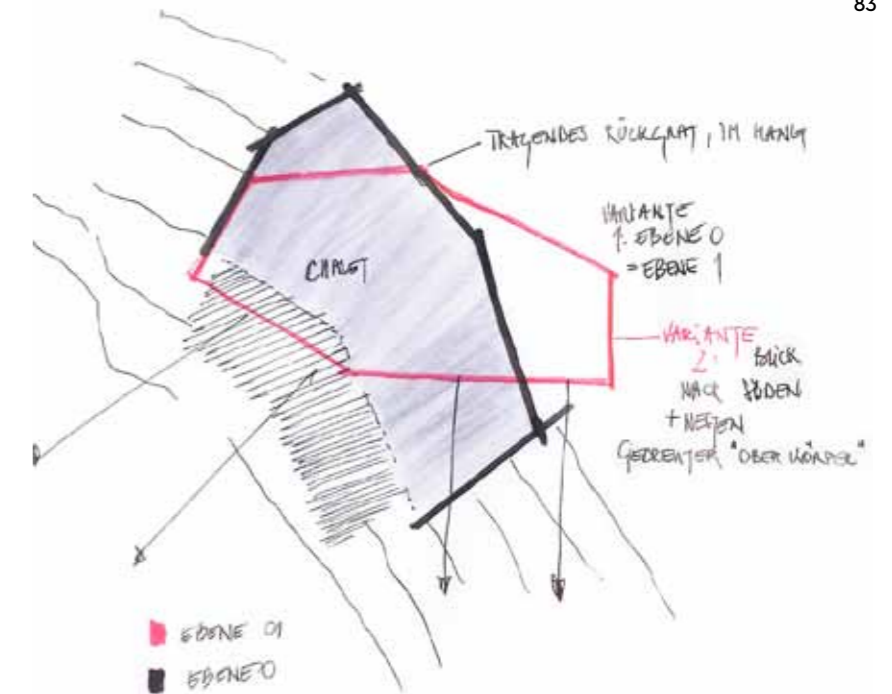 83
TRAGENDES RÜCKGRAT, IM HANG
VARIANTE
1. EBENE 0
= EBENE 1
CHALET
VARIANTE
2. BLICK
NACH SÜDEN
+ WESTEN
GEDREHTER "OBERKÖRPER"
EBENE 01
EBENE 0